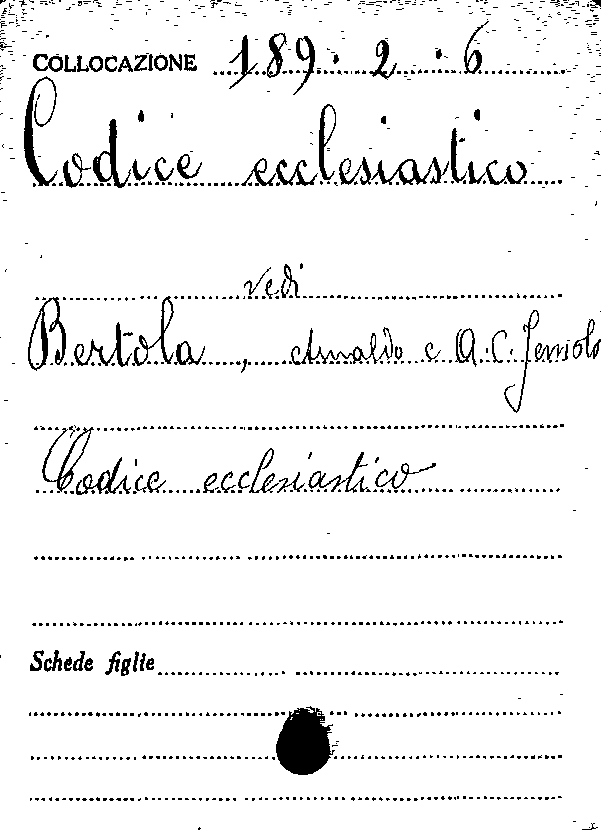 COLLOCAZIONE 189. 2. 6
Codice ecclesiastico
vedi
Bertola, Arnaldo e A. C. Jemolo
Codice ecclesiastico
Schede figlie